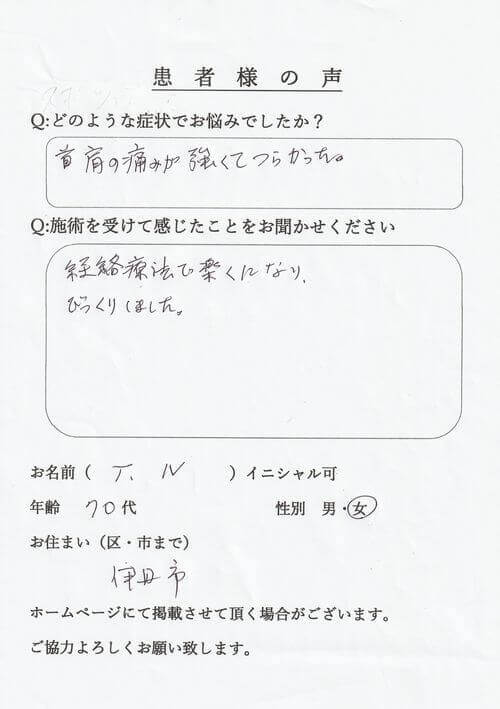 患者様の声
Q:どのような症状でお悩みでしたか？
首肩の痛みが強くてつらかった。
Q:施術を受けて感じたことをお聞かせください
経絡療法で楽くになり、
びっくりしました。
お名前（ T. N ）イニシャル可
年齢 70代 性別 男・女
お住まい（区・市まで）
伊丹市
ホームページにて掲載させて頂く場合がございます。
ご協力よろしくお願い致します。